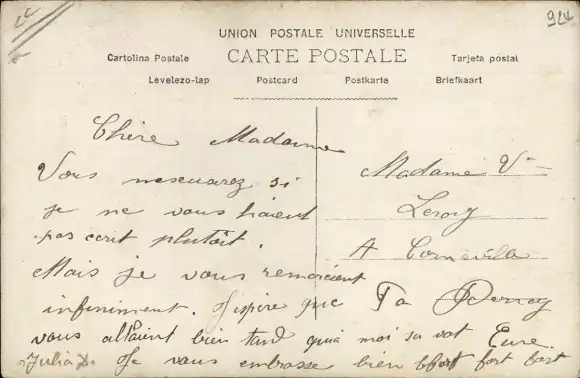 924
UNION POSTALE UNIVERSELLE
CARTE POSTALE
Cartolina Postale
Tarjeta postal
Levelezo-lap
Postcard
Postkarte
Briefkaart
Chère Madame
Vous mescuarez si
je ne vous haient
pas ecrit plutôit.
Mais je vous remercient
infiniment. Jespère que
vous allaint bien tand quia moi sa vat
Julia D. Je vous embrasse bien fort fort
Madame Vve
Leroy
A Corneville
Eure.